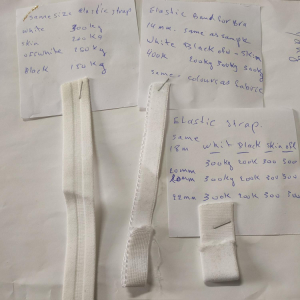 same size elastic strap
white 300kg
skin 200kg
offwhite 150kg
Black 150Kg
Elastic band for bra
14mm. same as sample
white Black skin
400K 200kg 200kg
same colour as fabric
Elastic strap.
same
18m white Black Skin
300kg 200K 300 300
10mm 300kg 200K 300 300
12mm 300K 200K 300 300